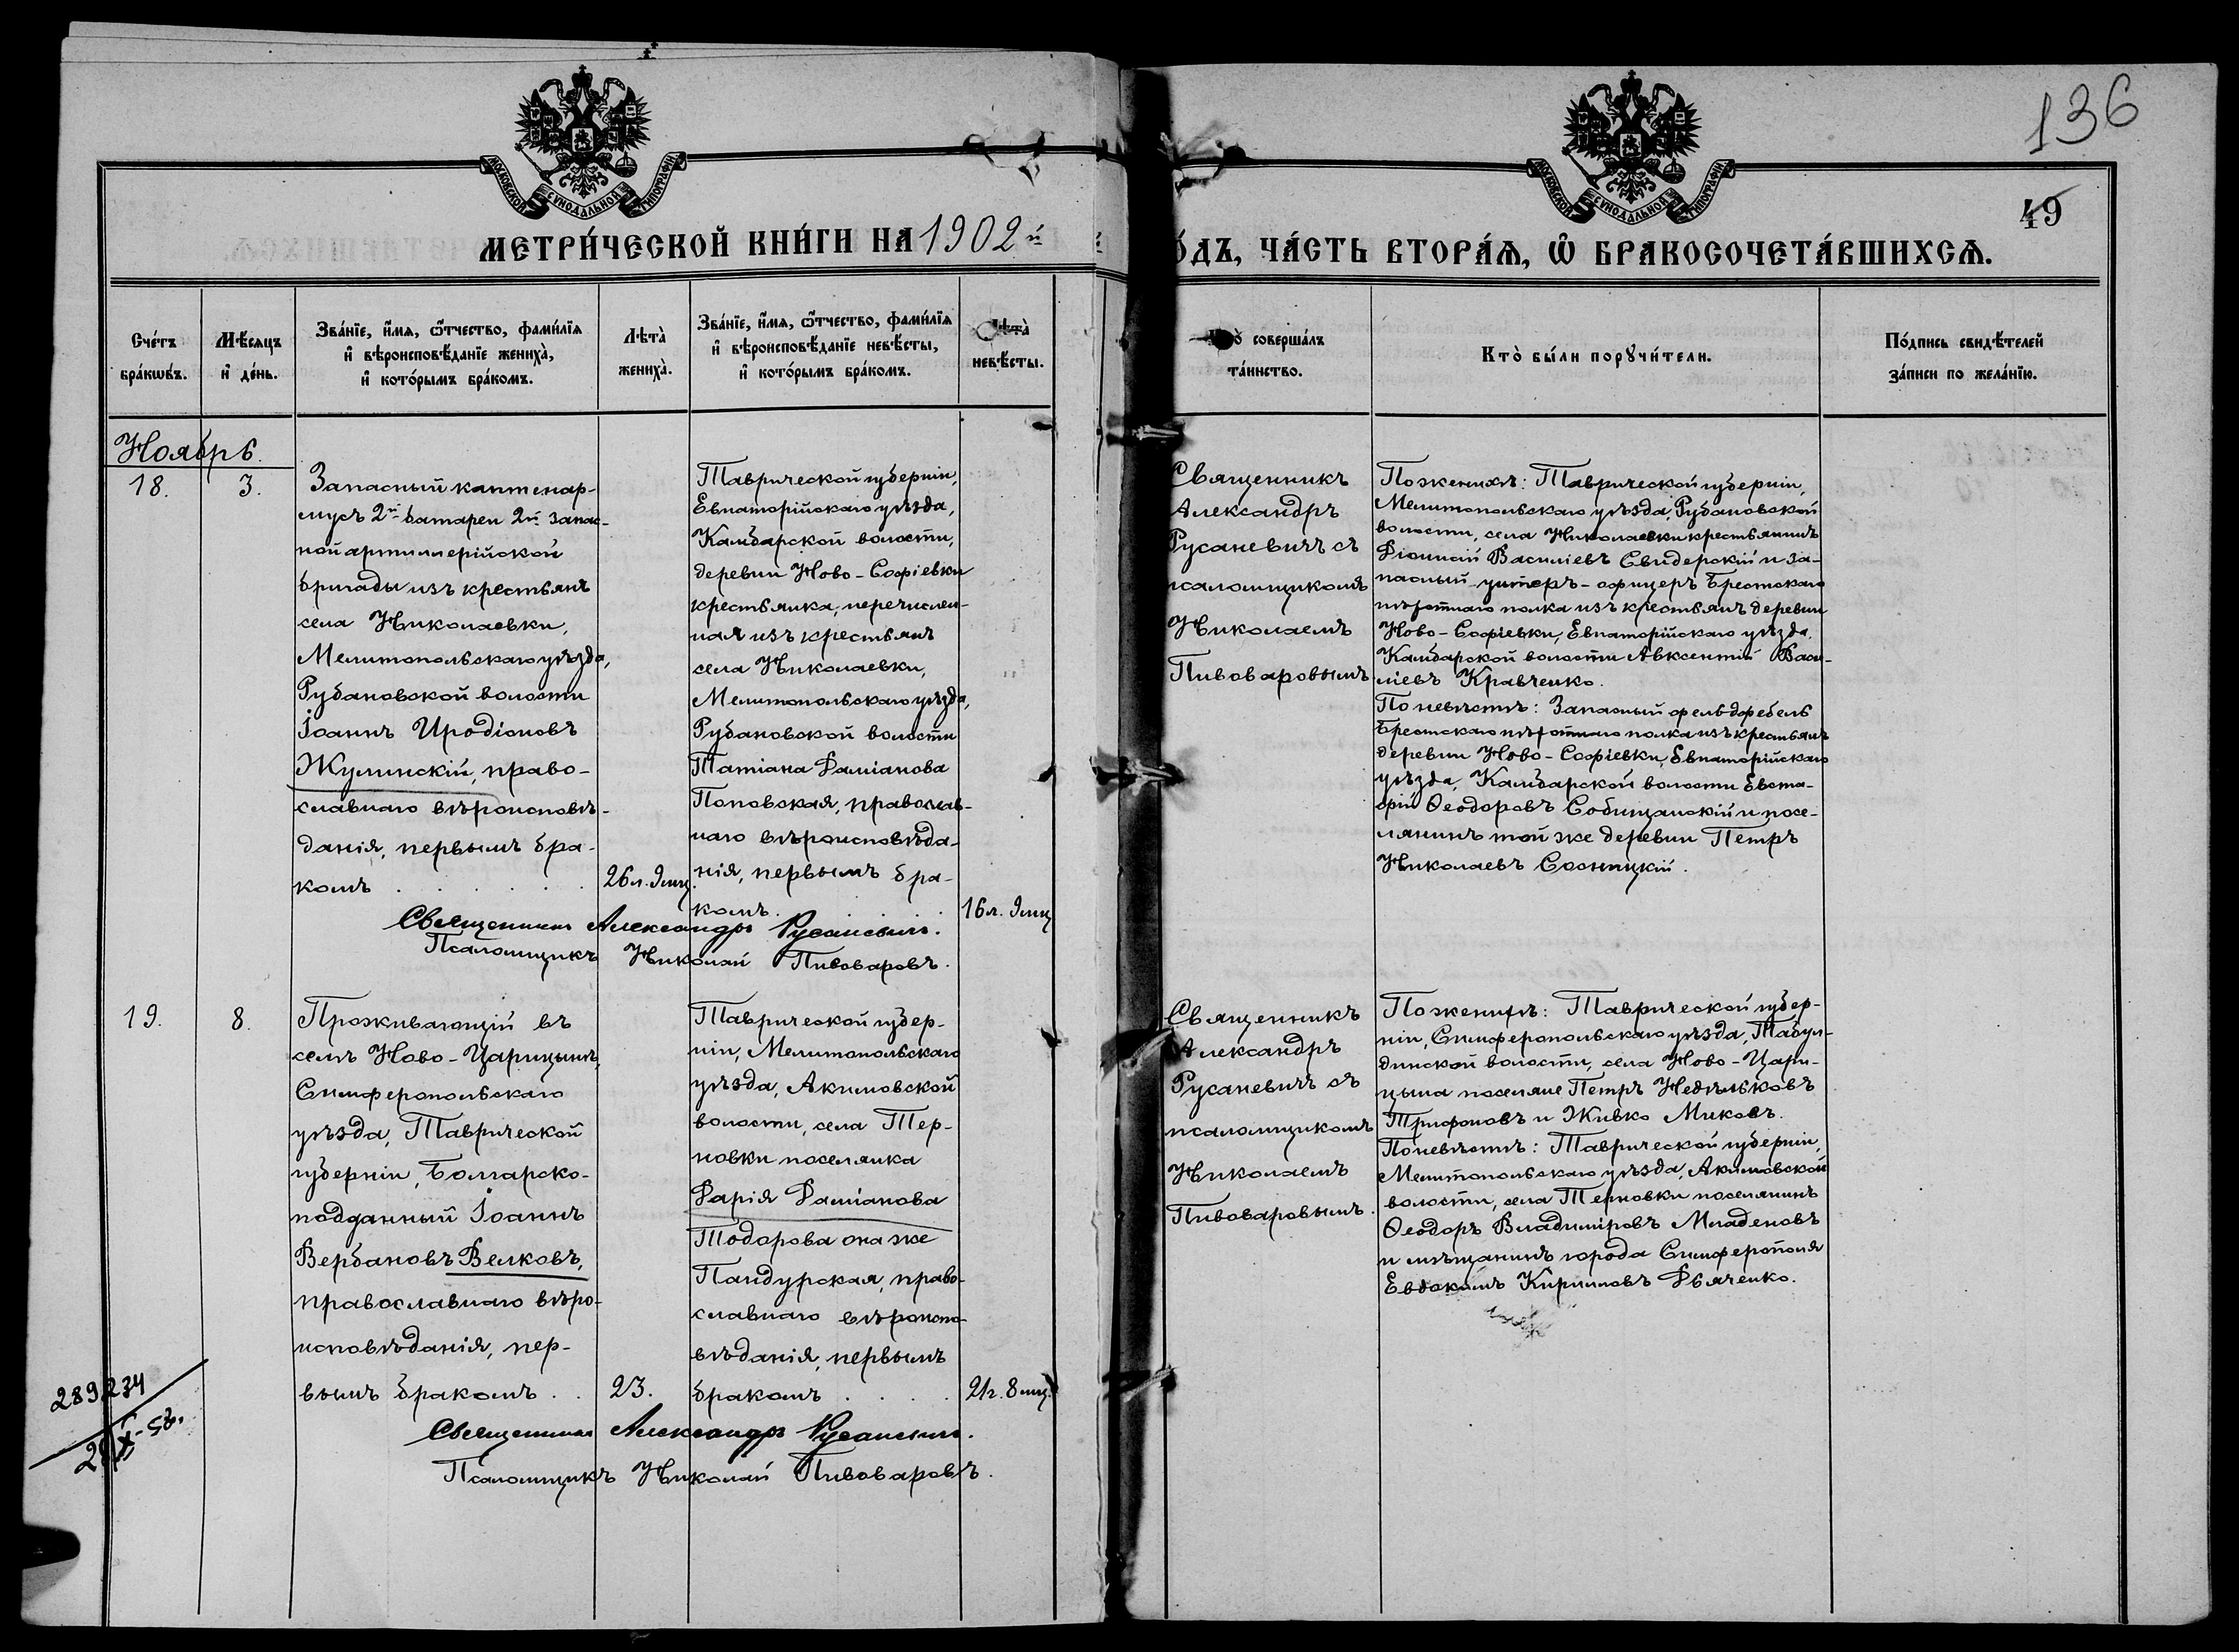 136
49
МОСКОВСКОЙ СѴНОДАЛЬНОЙ ТИПОГРАФІИ
МОСКОВСКОЙ СѴНОДАЛЬНОЙ ТИПОГРАФІИ
МЕТРИ́ЧЕСКОЙ КНИ́ГИ НА 1902й
О́ДЪ, ЧА́СТЬ ВТОРА́Ѧ, Ѿ БРАКОСОЧЕТА́ВШИХСѦ.
Сче́тъ
бра́кѡвъ.
Мѣ́сяцъ
и҆ де́нь.
Зва́нїе, и҆́мѧ, ѻ҆́тчество, фами́лїѧ
и҆ вѣроисповѣ́данїе жениха̀,
и҆ кото́рымъ бра́комъ.
Лѣта̀
жениха̀.
Зва́нїе, и҆́мѧ, ѻ҆́тчество, фами́лїѧ
и҆ вѣроисповѣ́данїе невѣ́сты,
и҆ кото́рымъ бра́комъ.
Лѣта̀
невѣ́сты.
соверша́лъ
та́инство.
Кто̀ бы́ли порꙋчи́тели.
По́дпись свидѣ́телей
за́писи по жела́нїю.
Ноябрь.
18.
3.
Запасный каптенар-
мусъ 2й батареи 2й запас-
ной артиллерійской
бригады изъ крестьянъ
села Николаевки,
Мелитопольскаго уѣзда,
Рубановской волости
Іоаннъ Иродіоновъ
Жулинскій, право-
славнаго вѣроисповѣ-
данія, первымъ бра-
комъ . . . . . .
26 л. 9 мц.
Таврической губерніи,
Евпаторійскаго уѣзда,
Камбарской волости,
деревни Ново-Софіевки
крестьянка, перечислен-
ная изъ крестьянъ
села Николаевки,
Мелитопольскаго уѣзда,
Рубановской волости
Татіана Даміанова
Поповская, православ-
наго вѣроисповѣда-
нія, первымъ бра-
комъ. . . . .
16 л. 9 мц
Священникъ
Александръ
Русаневичъ съ
псаломщикомъ
Николаемъ
Пивоваровымъ
По женихѣ: Таврической губерніи,
Мелитопольскаго уѣзда, Рубановской
волости, села Николаевки крестьянинъ
Діонисій Василіевъ Свидерскій и за-
пасный унтеръ-офицеръ Брестскаго
пѣхотнаго полка изъ крестьянъ деревни
Ново-Софіевки, Евпаторійскаго уѣзда,
Камбарской волости Авксентій Васи-
ліевъ Кравченко.
По невѣстѣ: Запасный фельдфебель
Брестскаго пѣхотнаго полка изъ крестьянъ
деревни Ново-Софіевки, Евпаторійскаго
уѣзда, Камбарской волости Евста-
фій Ѳеодоровъ Собищанскій и посе-
лянинъ той же деревни Петръ
Николаевъ Сосницкій.
Священникъ Александръ Русаневичъ.
Псаломщикъ Николай Пивоваровъ.
19.
8.
Проживающій въ
селѣ Ново-Царицынѣ,
Симферопольскаго
уѣзда, Таврической
губерніи, Болгарско-
подданный Іоаннъ
Вербановъ Велковъ,
православнаго вѣро-
исповѣданія, пер-
вымъ бракомъ . .
23.
Таврической губер-
ніи, Мелитопольскаго
уѣзда, Акимовской
волости, села Тер-
новки поселянка
Дарія Даміанова
Тодорова она же
Пандурская, право-
славнаго вѣроиспо-
вѣданія, первымъ
бракомъ . . . .
21 г. 8 мц.
Священникъ
Александръ
Русаневичъ съ
псаломщикомъ
Николаемъ
Пивоваровымъ.
По женихѣ: Таврической губер-
ніи, Симферопольскаго уѣзда, Табул-
динской волости, села Ново-Цари-
цына поселяне Петръ Недѣльковъ
Трифоновъ и Живко Миковъ.
По невѣстѣ: Таврической губерніи,
Мелитопольскаго уѣзда, Акимовской
волости, села Терновки поселянинъ
Ѳеодоръ Владиміровъ Младеновъ
и мѣщанинъ города Симферополя
Евдокимъ Кирилловъ Дьяченко.
Священникъ Александръ Русаневичъ.
Псаломщикъ Николай Пивоваровъ.
289,234